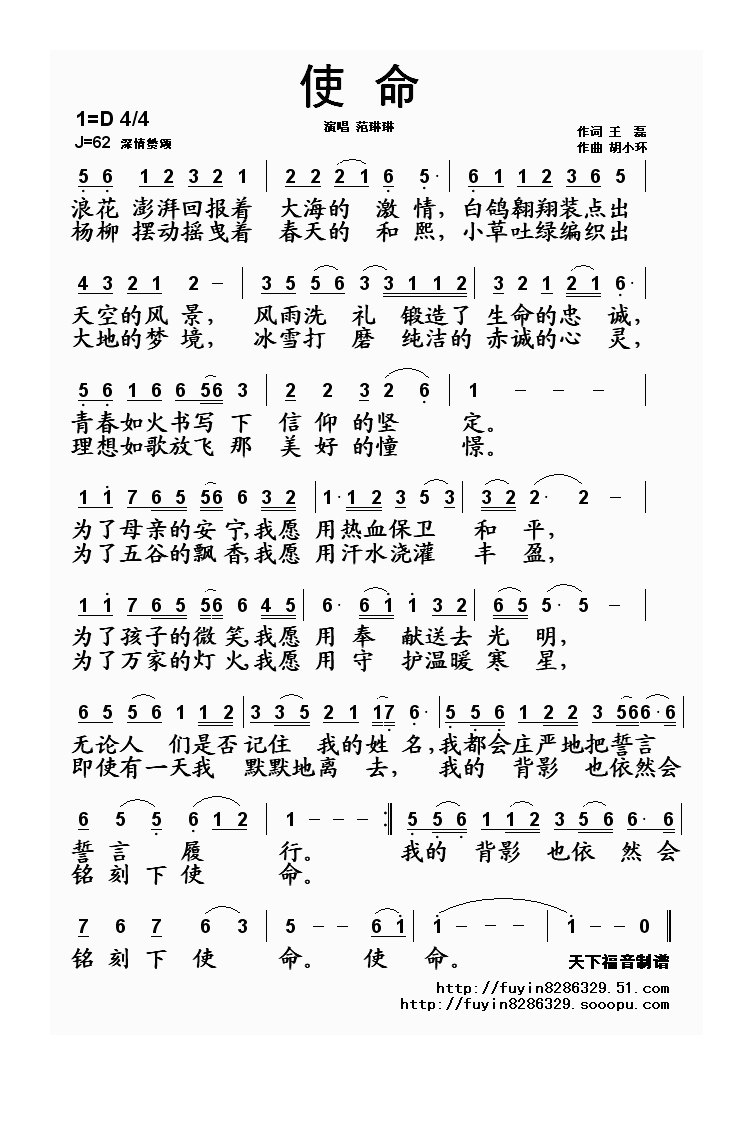 使 命
1=D 4/4
演唱 范琳琳
作词 王 磊
J=62 深情赞颂
作曲 胡小环
5 6 1 2 3 2 1 | 2 2 2 1 6 5· | 6 1 1 2 3 6 5 |
浪花 澎湃回报着 大海的 激 情，白鸽翱翔装点出
杨柳 摆动摇曳着 春天的 和 熙，小草吐绿编织出
4 3 2 1 2 － | 3 5 5 6 3 3 1 1 2 | 3 2 1 2 1 6· |
天空的风 景， 风雨洗 礼 锻造了 生命的忠 诚，
大地的梦 境， 冰雪打 磨 纯洁的 赤诚的心 灵，
5 6 1 6 6 5 6 3 | 2 2 3 2 6 | 1 － － － |
青春如火书写 下 信 仰 的坚 定。
理想如歌放飞 那 美 好 的憧 憬。
1 1 7 6 5 5 6 6 3 2 | 1· 1 2 3 5 3 | 3 2 2· 2 － |
为了母亲的安 宁，我愿 用热血保卫 和 平，
为了五谷的飘 香，我愿 用汗水浇灌 丰 盈，
1 1 7 6 5 5 6 6 4 5 | 6· 6 1 1 3 2 | 6 5 5· 5 － |
为了孩子的微 笑，我愿 用 奉 献送去 光 明，
为了万家的灯 火，我愿 用 守 护温暖 寒 星，
6 5 5 6 1 1 2 | 3 3 5 2 1 1 7 6· | 5 5 6 1 2 2 3 5 6 6· 6 |
无论人 们是否 记住 我的姓 名，我都会庄严地把誓言
即使有一天我 默默地离 去， 我的 背影 也依然会
6 5 5 6 1 2 | 1 － － － :‖ 5 5 6 1 1 2 3 5 6 6· 6 |
誓 言 履 行。 我的 背影 也依 然会
铭 刻 下 使 命。
7 6 7 6 3 | 5 － － 6 1 | 1 － － － | 1 － － 0 ‖
铭 刻 下 使 命。 使 命。
天下福音制谱
http://fuyin8286329.51.com
http://fuyin8286329.sooopu.com